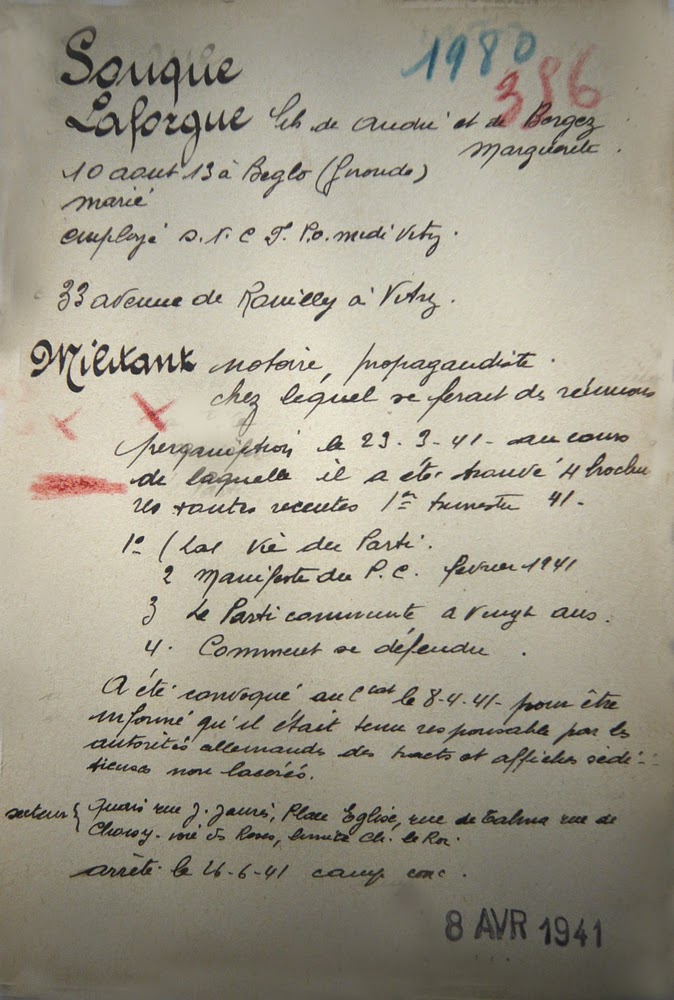 1980
386
Souque
Laforgue fils de André et de Bergez
Marguerite.
10 aout 13 à Beglo (Gironde)
marié
employé S.N.C.F. P.O. midi Vitry.
33 avenue de Rouilly à Vitry.
Militant notoire, propagandiste.
chez lequel se ferait des réunions
perquisition le 23-3-41- au cours
de laquelle il a été trouvé 4 brochu
res toutes recentes 1er trimestre 41-
1º ( La Vie du Parti.
2 Manifeste du P.C. fevrier 1941
3 Le Parti communiste a Vingt ans.
4. Comment se défendre.
A été convoqué au Ccat le 8-4-41- pour être
informé qu'il était tenu responsable par les
autorités allemandes des tracts et affiches sédi-
tieuses non lacérés.
secteur { quais rue J. Jaurès, Place Eglise, rue de Talma rue de
Choisy- voie des Roses, limite Ch. le Roi.
arrêté le 26-6-41 camp conc.
8 AVR 1941